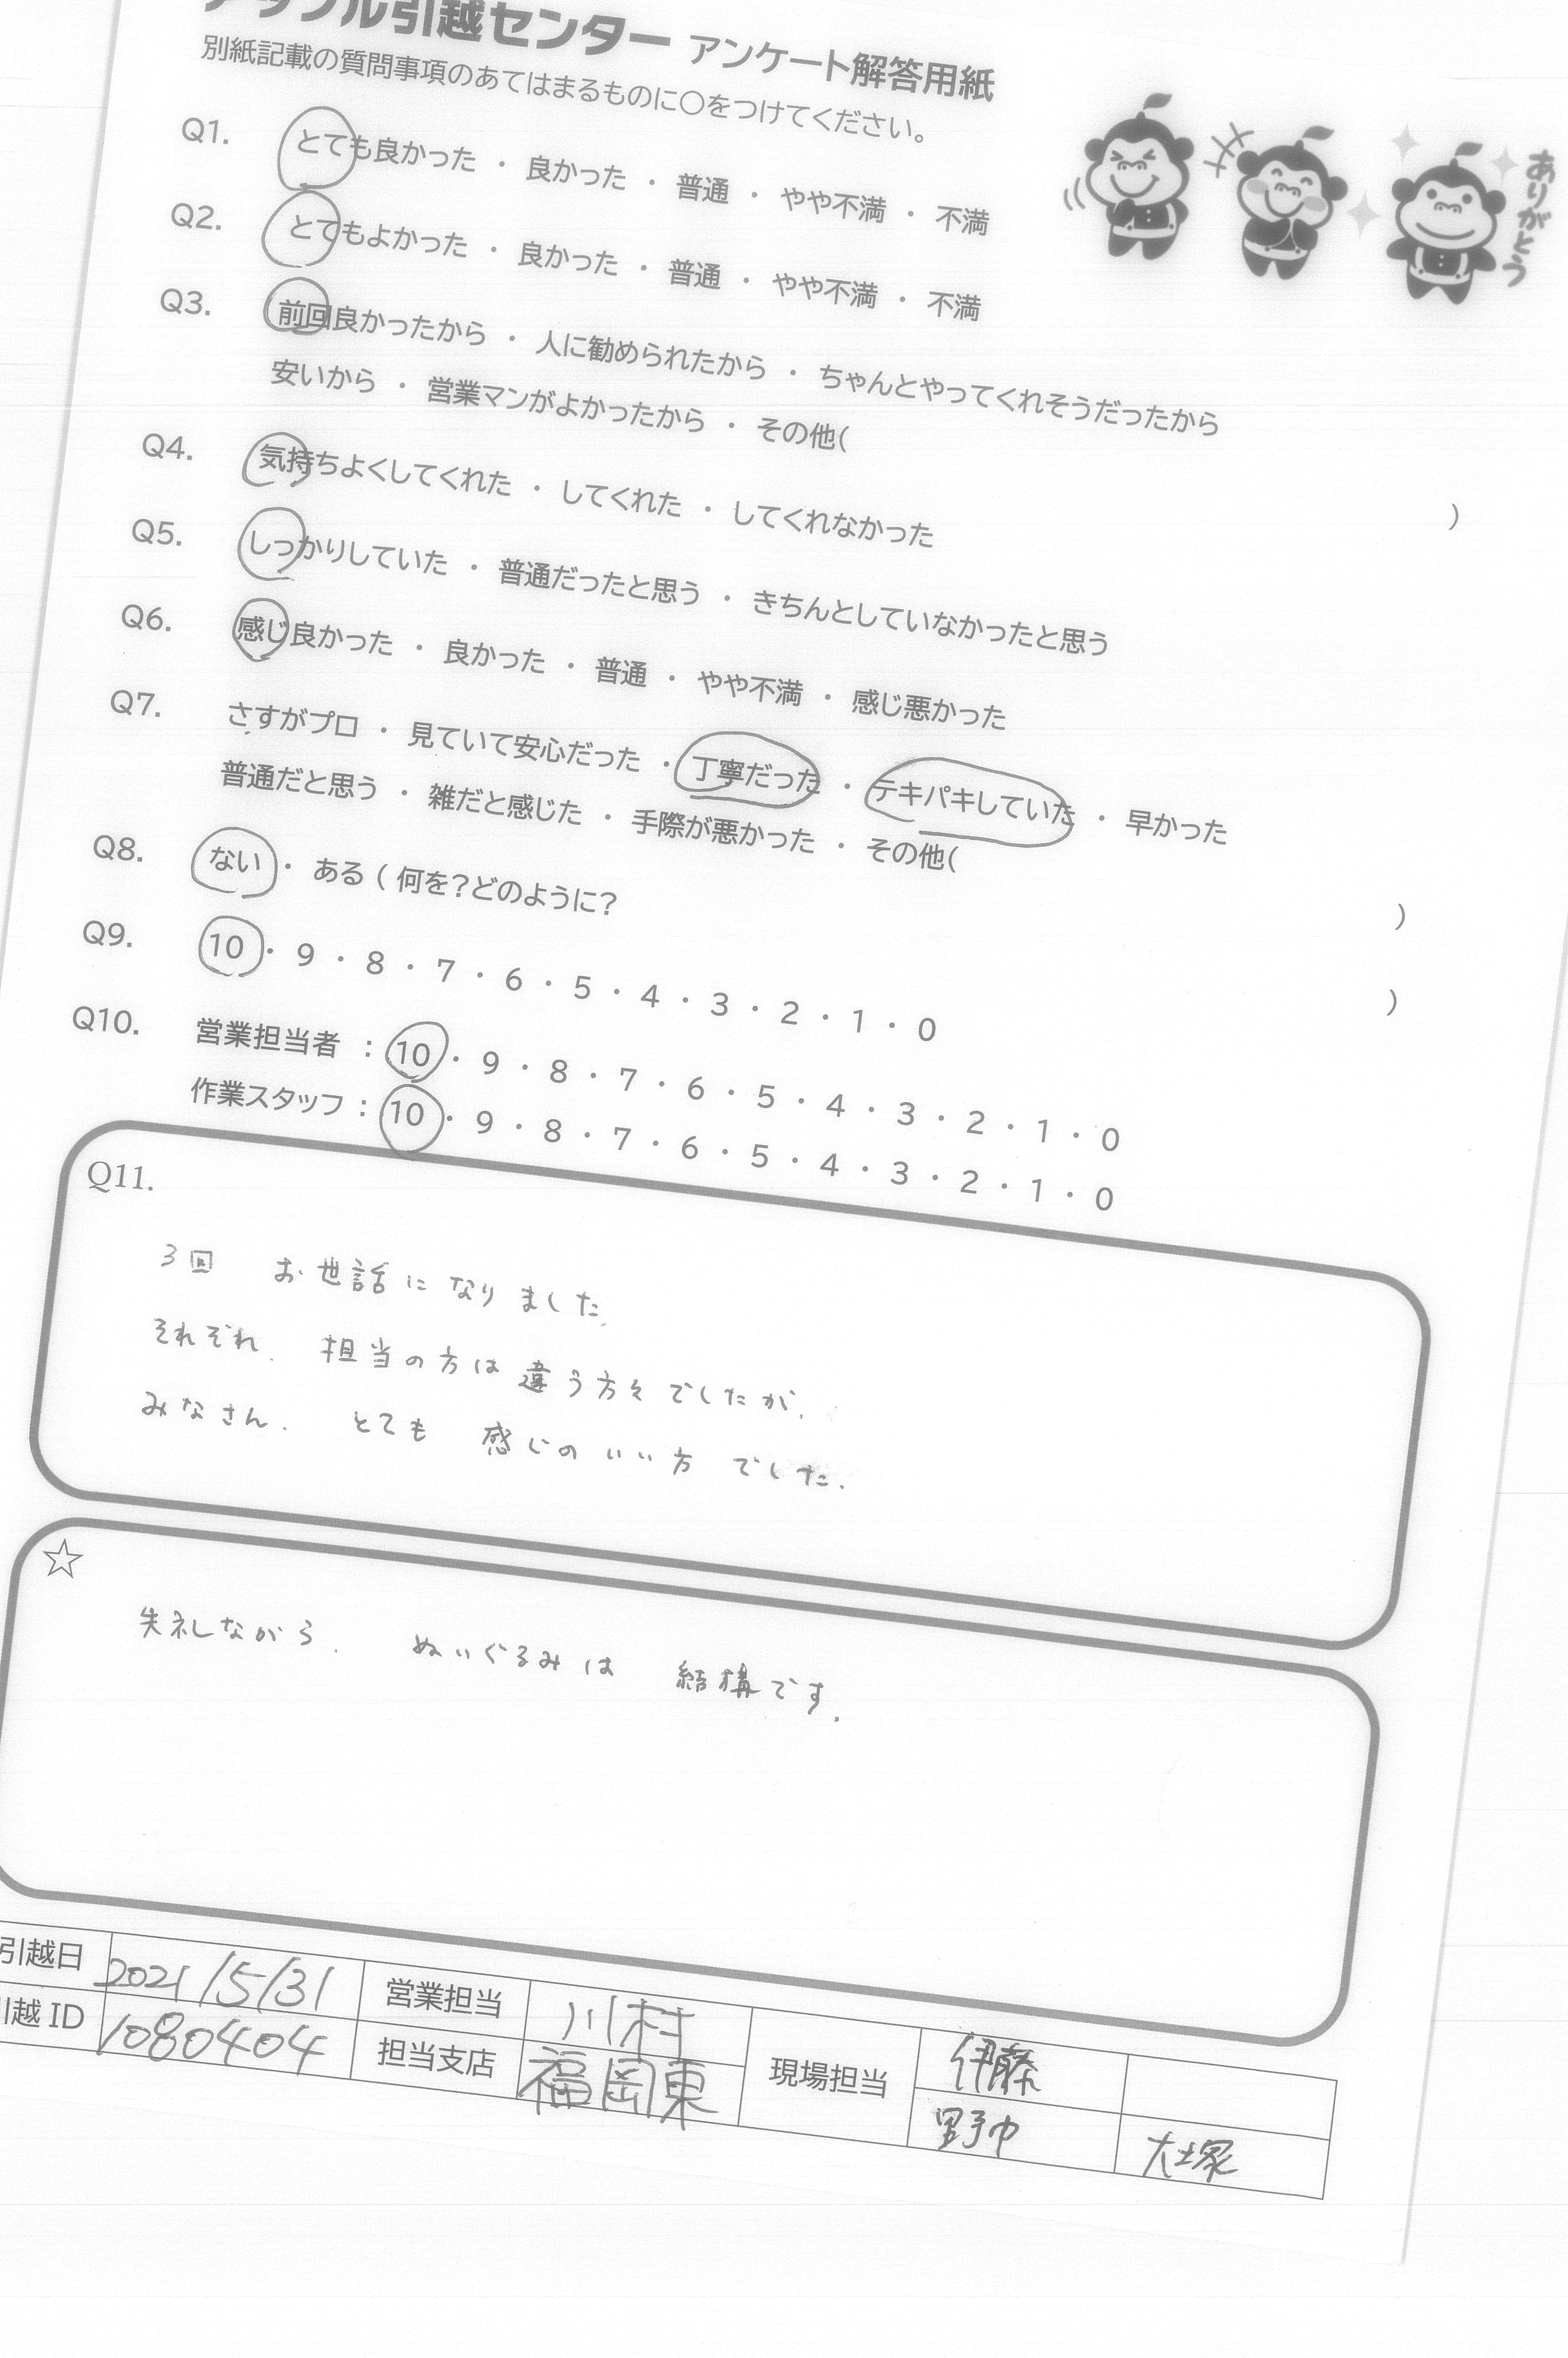 アップル引越センター アンケート解答用紙
別紙記載の質問事項のあてはまるものに〇をつけてください。
ありがとう
Q1. とても良かった ・ 良かった ・ 普通 ・ やや不満 ・ 不満
Q2. とてもよかった ・ 良かった ・ 普通 ・ やや不満 ・ 不満
Q3. 前回良かったから ・ 人に勧められたから ・ ちゃんとやってくれそうだったから
安いから ・ 営業マンがよかったから ・ その他( )
Q4. 気持ちよくしてくれた ・ してくれた ・ してくれなかった
Q5. しっかりしていた ・ 普通だったと思う ・ きちんとしていなかったと思う
Q6. 感じ良かった ・ 良かった ・ 普通 ・ やや不満 ・ 感じ悪かった
Q7. さすがプロ ・ 見ていて安心だった ・ 丁寧だった ・ テキパキしていた ・ 早かった
普通だと思う ・ 雑だと感じた ・ 手際が悪かった ・ その他( )
Q8. ない ・ ある ( 何を?どのように? )
Q9. 10 ・ 9 ・ 8 ・ 7 ・ 6 ・ 5 ・ 4 ・ 3 ・ 2 ・ 1 ・ 0
Q10. 営業担当者 : 10 ・ 9 ・ 8 ・ 7 ・ 6 ・ 5 ・ 4 ・ 3 ・ 2 ・ 1 ・ 0
作業スタッフ : 10 ・ 9 ・ 8 ・ 7 ・ 6 ・ 5 ・ 4 ・ 3 ・ 2 ・ 1 ・ 0
Q11.
3回 お世話になりました。
それぞれ、担当の方は違う方々でしたが、
みなさん、とても 感じのいい方でした。
☆
失礼しながら、ぬいぐるみは 結構です。
引越日 2021/5/31 営業担当 川村 現場担当 伊藤
引越ID 1080404 担当支店 福岡東 野中 大塚